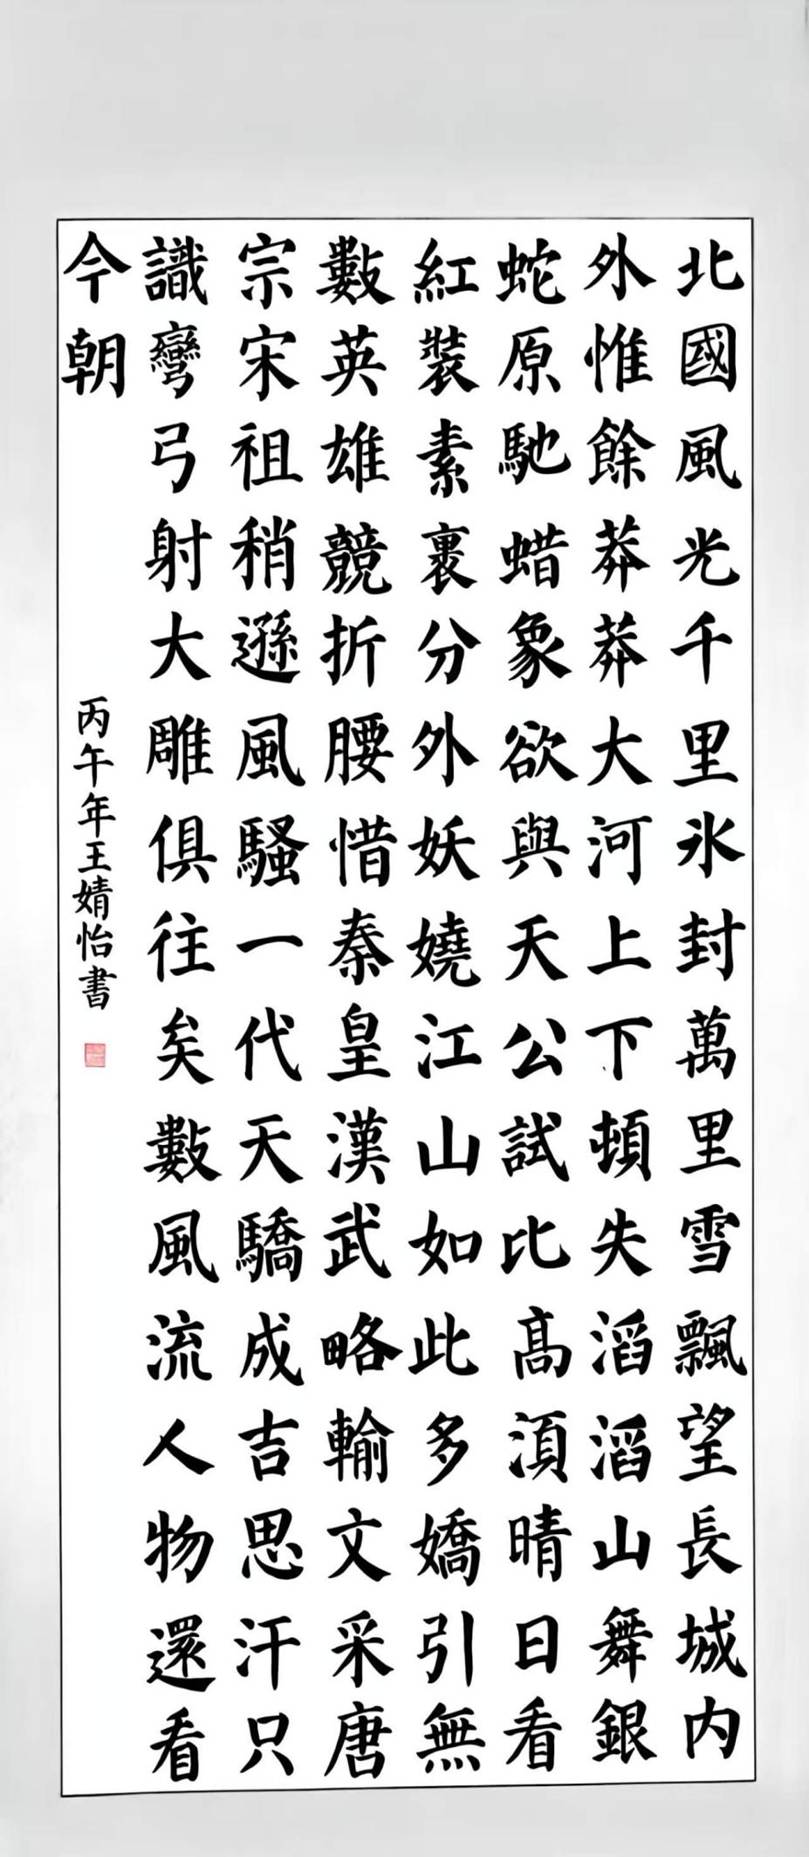 北國風光千里氷封萬里雪飄望長城内
外惟餘莽莽大河上下頓失滔滔山舞銀
蛇原馳蜡象欲與天公試比髙湏晴日看
紅裝素裹分外妖嬈江山如此多嬌引無
數英雄競折腰惜秦皇漢武略輸文采唐
宗宋祖稍遜風騷一代天驕成吉思汗只
識彎弓射大雕俱往矣數風流人物還看
今朝
丙午年王婧怡書